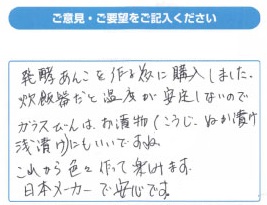 ご意見・ご要望をご記入ください
発酵あんこを作る為に購入しました。
炊飯器だと温度が安定しないので
ガラスびんは、お漬物(こうじ・ぬか漬け
浅漬け)にもいいですね
これから色々作って楽しみます。
日本メーカーで安心です。